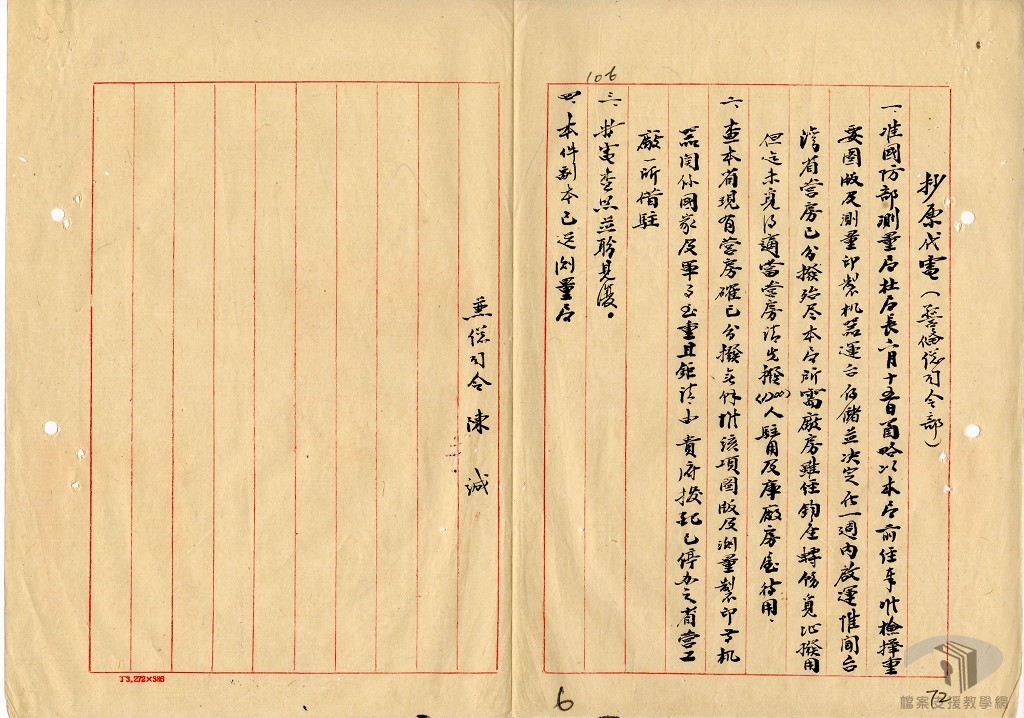 抄原代電（警備總司令部）
一、准國防部測量局杜局長六月十五日函略以本局前任奉准檢擇重
要圖版及測量印製机器運台存儲並决定在一週內啟運惟聞台
灣省營房已分撥殆尽本局所需廠房雖經鈞座轉飭覓地撥用
但迄未覓得適當營房請先撥(1200)人駐用及庫廠房屋待用、
二、查本省現有營房確已分撥無餘惟該項圖版及測量製印等机
器関係國家及軍事至重且鉅請由 貴府撥配已停办之省營工
廠一所借駐
三、特電查照並盼見復。
四、本件副本已送測量局
兼總司令 陳 誠
106
6
72
J 3,272×386
檔案支援教學網